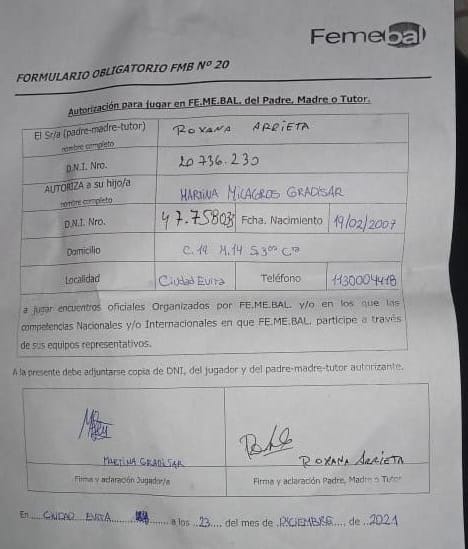 Femebal
FORMULARIO OBLIGATORIO FMB Nº 20
Autorización para jugar en FE.ME.BAL. del Padre, Madre o Tutor.
El Sr/a (padre-madre-tutor) ROXANA ARRIETA
nombre completo
D.N.I. Nro. 20.736.230
AUTORIZA a su hijo/a MARTINA MILAGROS GRADISAR
nombre completo
D.N.I. Nro. 47.75803 Fcha. Nacimiento 19/02/2007
Domicilio C.19 M.14 S.3
Localidad Ciudad Evita Teléfono 1130004418
a jugar encuentros oficiales Organizados por FE.ME.BAL. y/o en los que las
competencias Nacionales y/o Internacionales en que FE.ME.BAL. participe a través
de sus equipos representativos.
A la presente debe adjuntarse copia de DNI, del jugador y del padre-madre-tutor autorizante.
MARTINA GRADISAR ROXANA ARRIETA
Firma y aclaración Jugador/a Firma y aclaración Padre, Madre o Tutor
En CIUDAD EVITA a los 23 del mes de DICIEMBRE de 2021